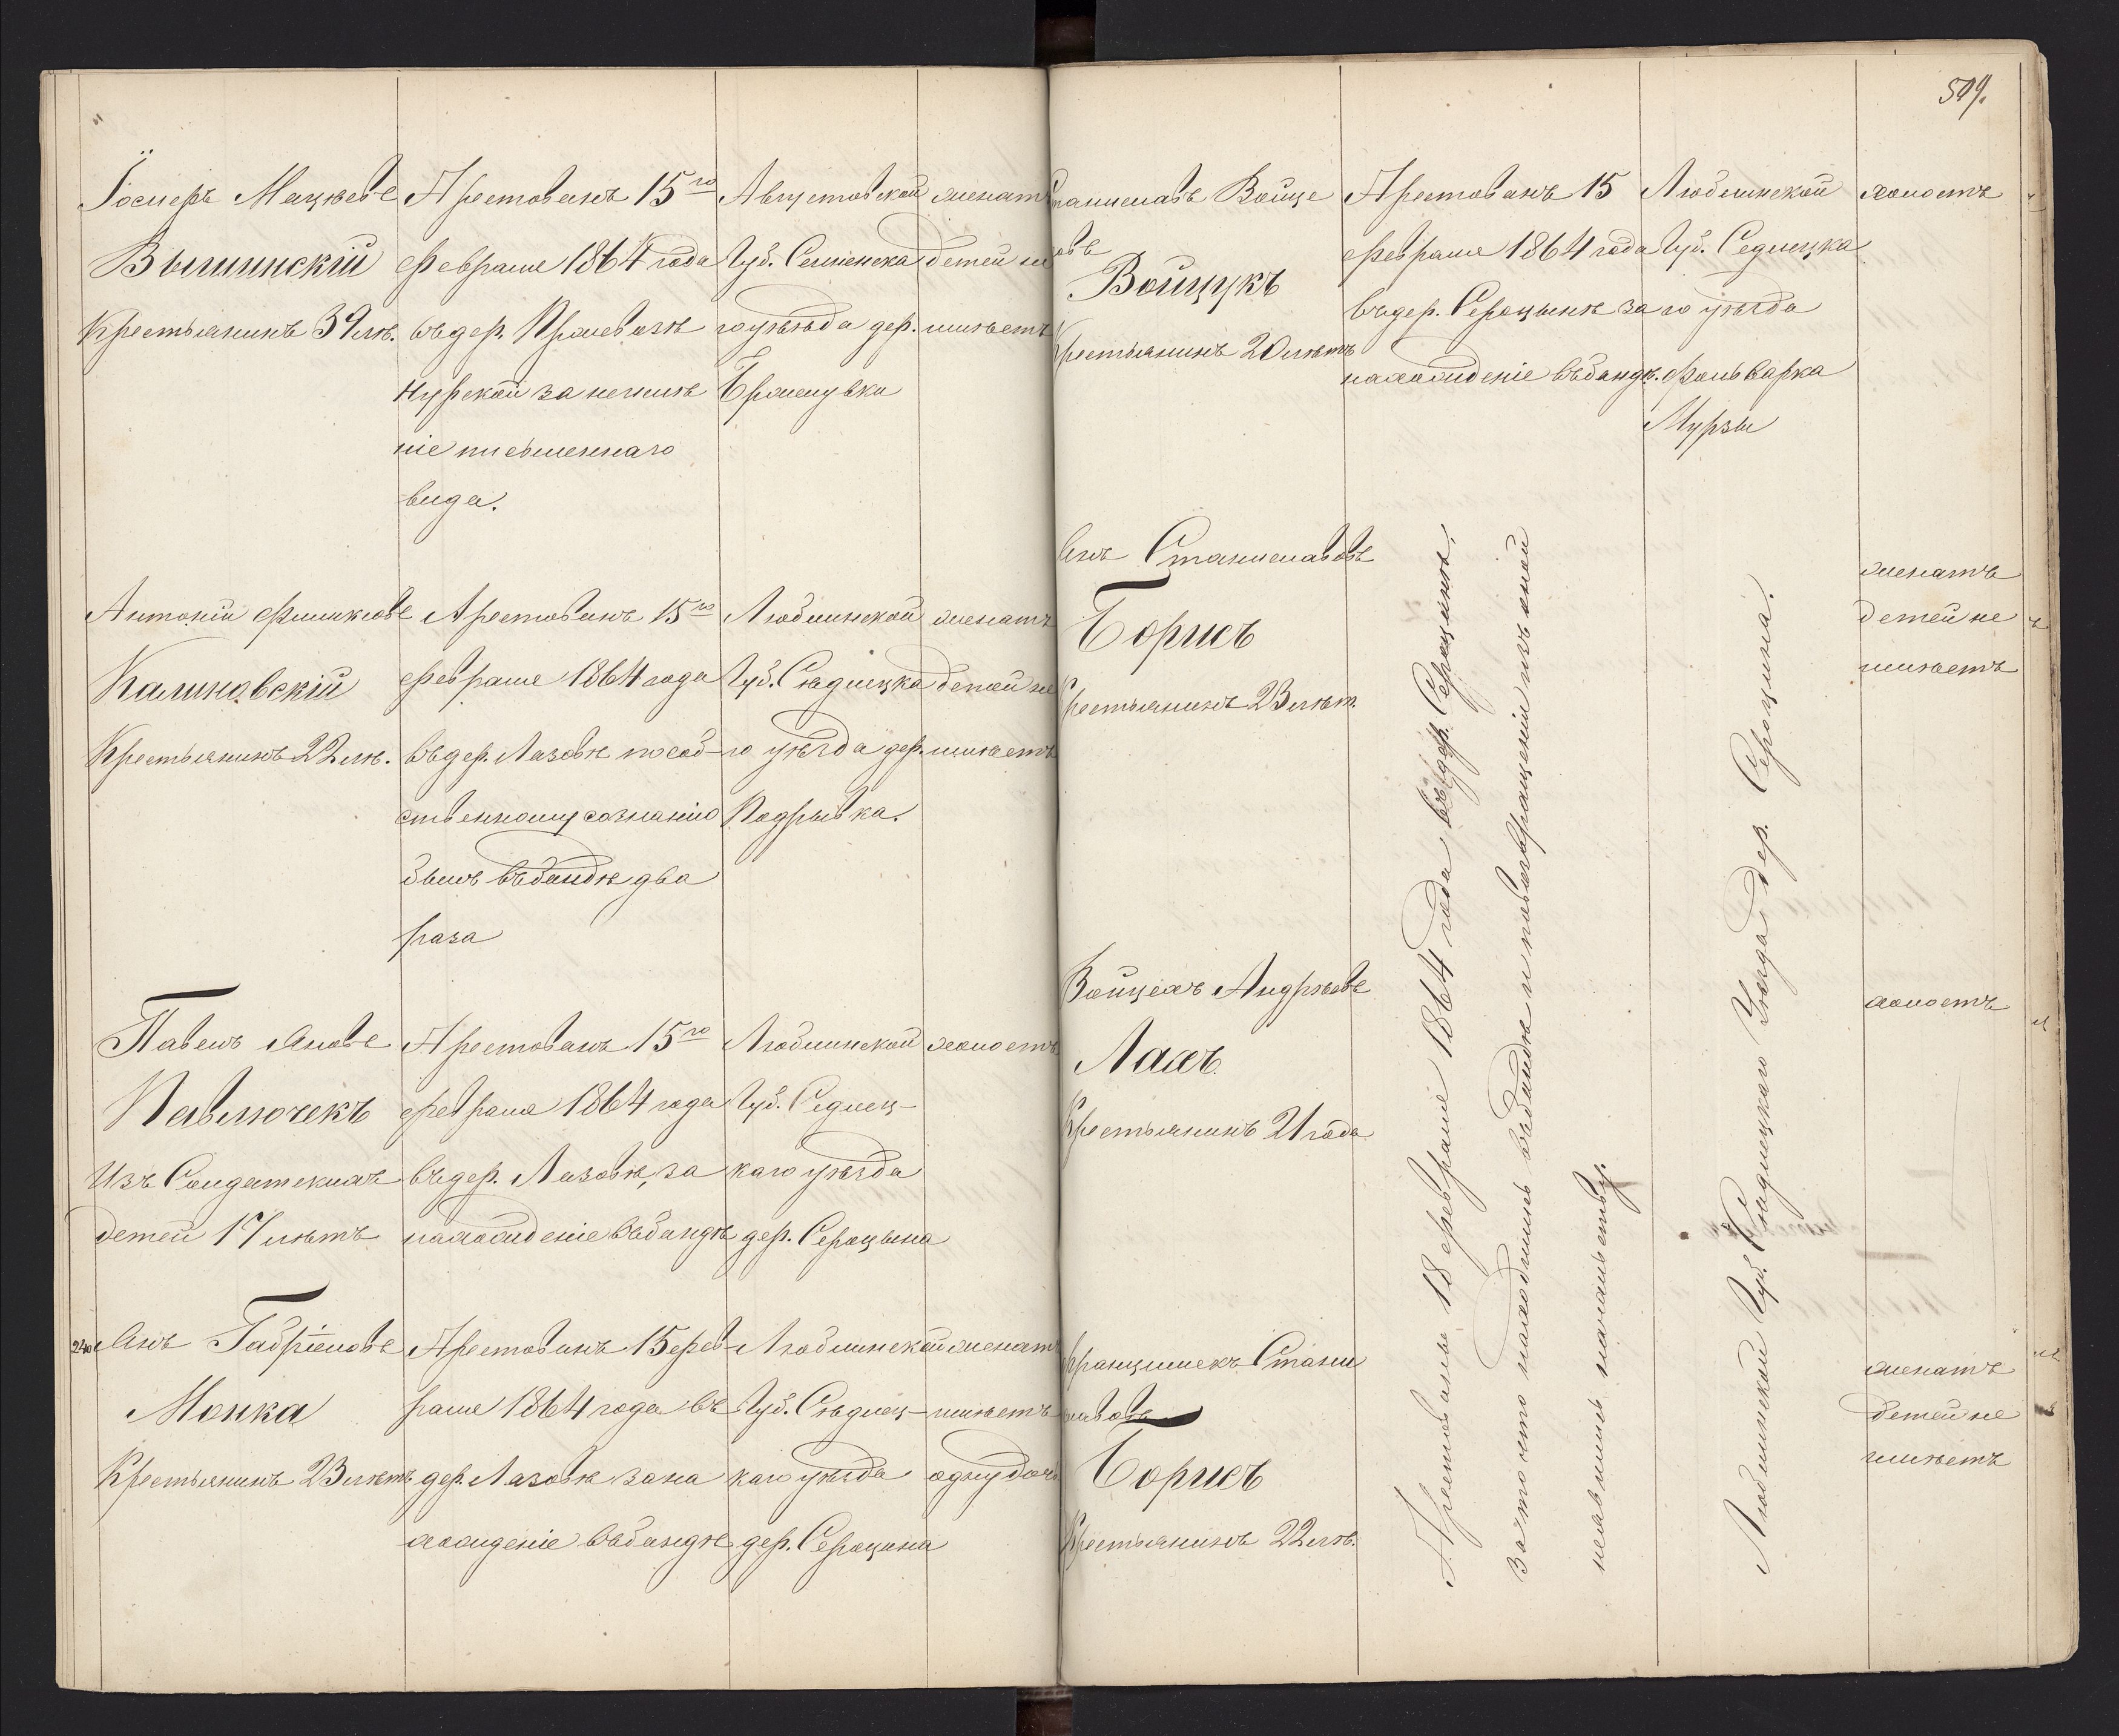 Іосиеръ Мацѣевъ
Вышинскій
Крестьянинъ 39 лѣ.
Арестованъ 15го
Февраля 1864 года
въ дер.
Нурской за неимѣ
ніе письменнаго
вида.
Августовской
Губ.
го уѣзда дер.
женатъ
детей не
имѣетъ
Антоній
Калиновскій
Крестьянинъ 22 лѣ.
Арестованъ 15го
Февраля 1864 года
въ дер. Лазовѣ по соб-
ственному сознанію
былъ въ бандѣ два
раза
Люблинской
Губ. Сѣдлецка
го уѣзда дер.
Подрывка.
женатъ
детей не
имѣетъ
Павелъ Яновъ
Павлючекъ
Изъ Солдатскихъ
детей 17 лѣтъ
Арестованъ 15го
Февраля 1864 года
въ дер. Лазовѣ, за
нахожденіе въ бандѣ
Люблинской
Губ. Седлец-
каго уѣзда
дер. Сероцына
холостъ
240
Янъ Габріеловъ
Монка
Крестьянинъ 23 лѣтъ
Арестованъ 15 Фев-
раля 1864 года въ
дер. Лазовѣ за на
хожденіе въ бандѣ
Люблинской
Губ. Сѣдлец-
каго уѣзда
дер. Сероцина
женатъ
имѣетъ
одну дочь
509.
Станиславъ Войце
ховъ
Войцукъ
Крестьянинъ 20 лѣтъ
Арестованъ 15
Февраля 1864 года
въ дер. Сероцынѣ за
нахожденіе въ бандѣ.
Люблинской
Губ. Седлецка
го уѣзда
Фольварка
Мурзы
холостъ
Янъ Станиславовъ
Борисъ
Крестьянинъ 23 лѣт.
женатъ
детей не
имѣетъ
Войцехъ Андрѣевъ
Лахъ.
Крестьянинъ 21 года
холостъ
Францишекъ Стани
славовъ
Борисъ
Крестьянинъ 22 лѣ.
женатъ
детей не
имѣетъ
Арестованы 18 Февраля 1864 года въ дер. Сероцинѣ,
За то что находились въ бандѣ и по возвращеніи изъ оной
неявились начальству.
Люблинской Губ. Сѣдлецкаго Уѣзда дер. Сероцина.